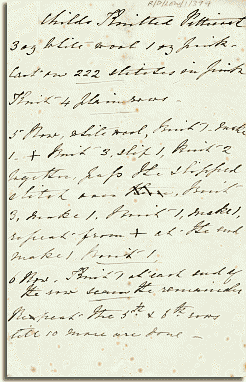 Childs Knitted Petticoat
3 oz white wool 1 oz pink
Cast on 222 stitches in pink
Knit 4 plain rows.
5 Row, white wool, Knit 1, make
1, + Knit 3, slip 1, Knit 2
together, pass the slipped
stitch over, Knit
3, make 1, Knit 1, make 1
repeat from + at the end
make 1, Knit 1.
6 Row, Knit 1 at each end of
the row seam the remainder
Repeat the 5th & 6th rows
till 10 more are done -